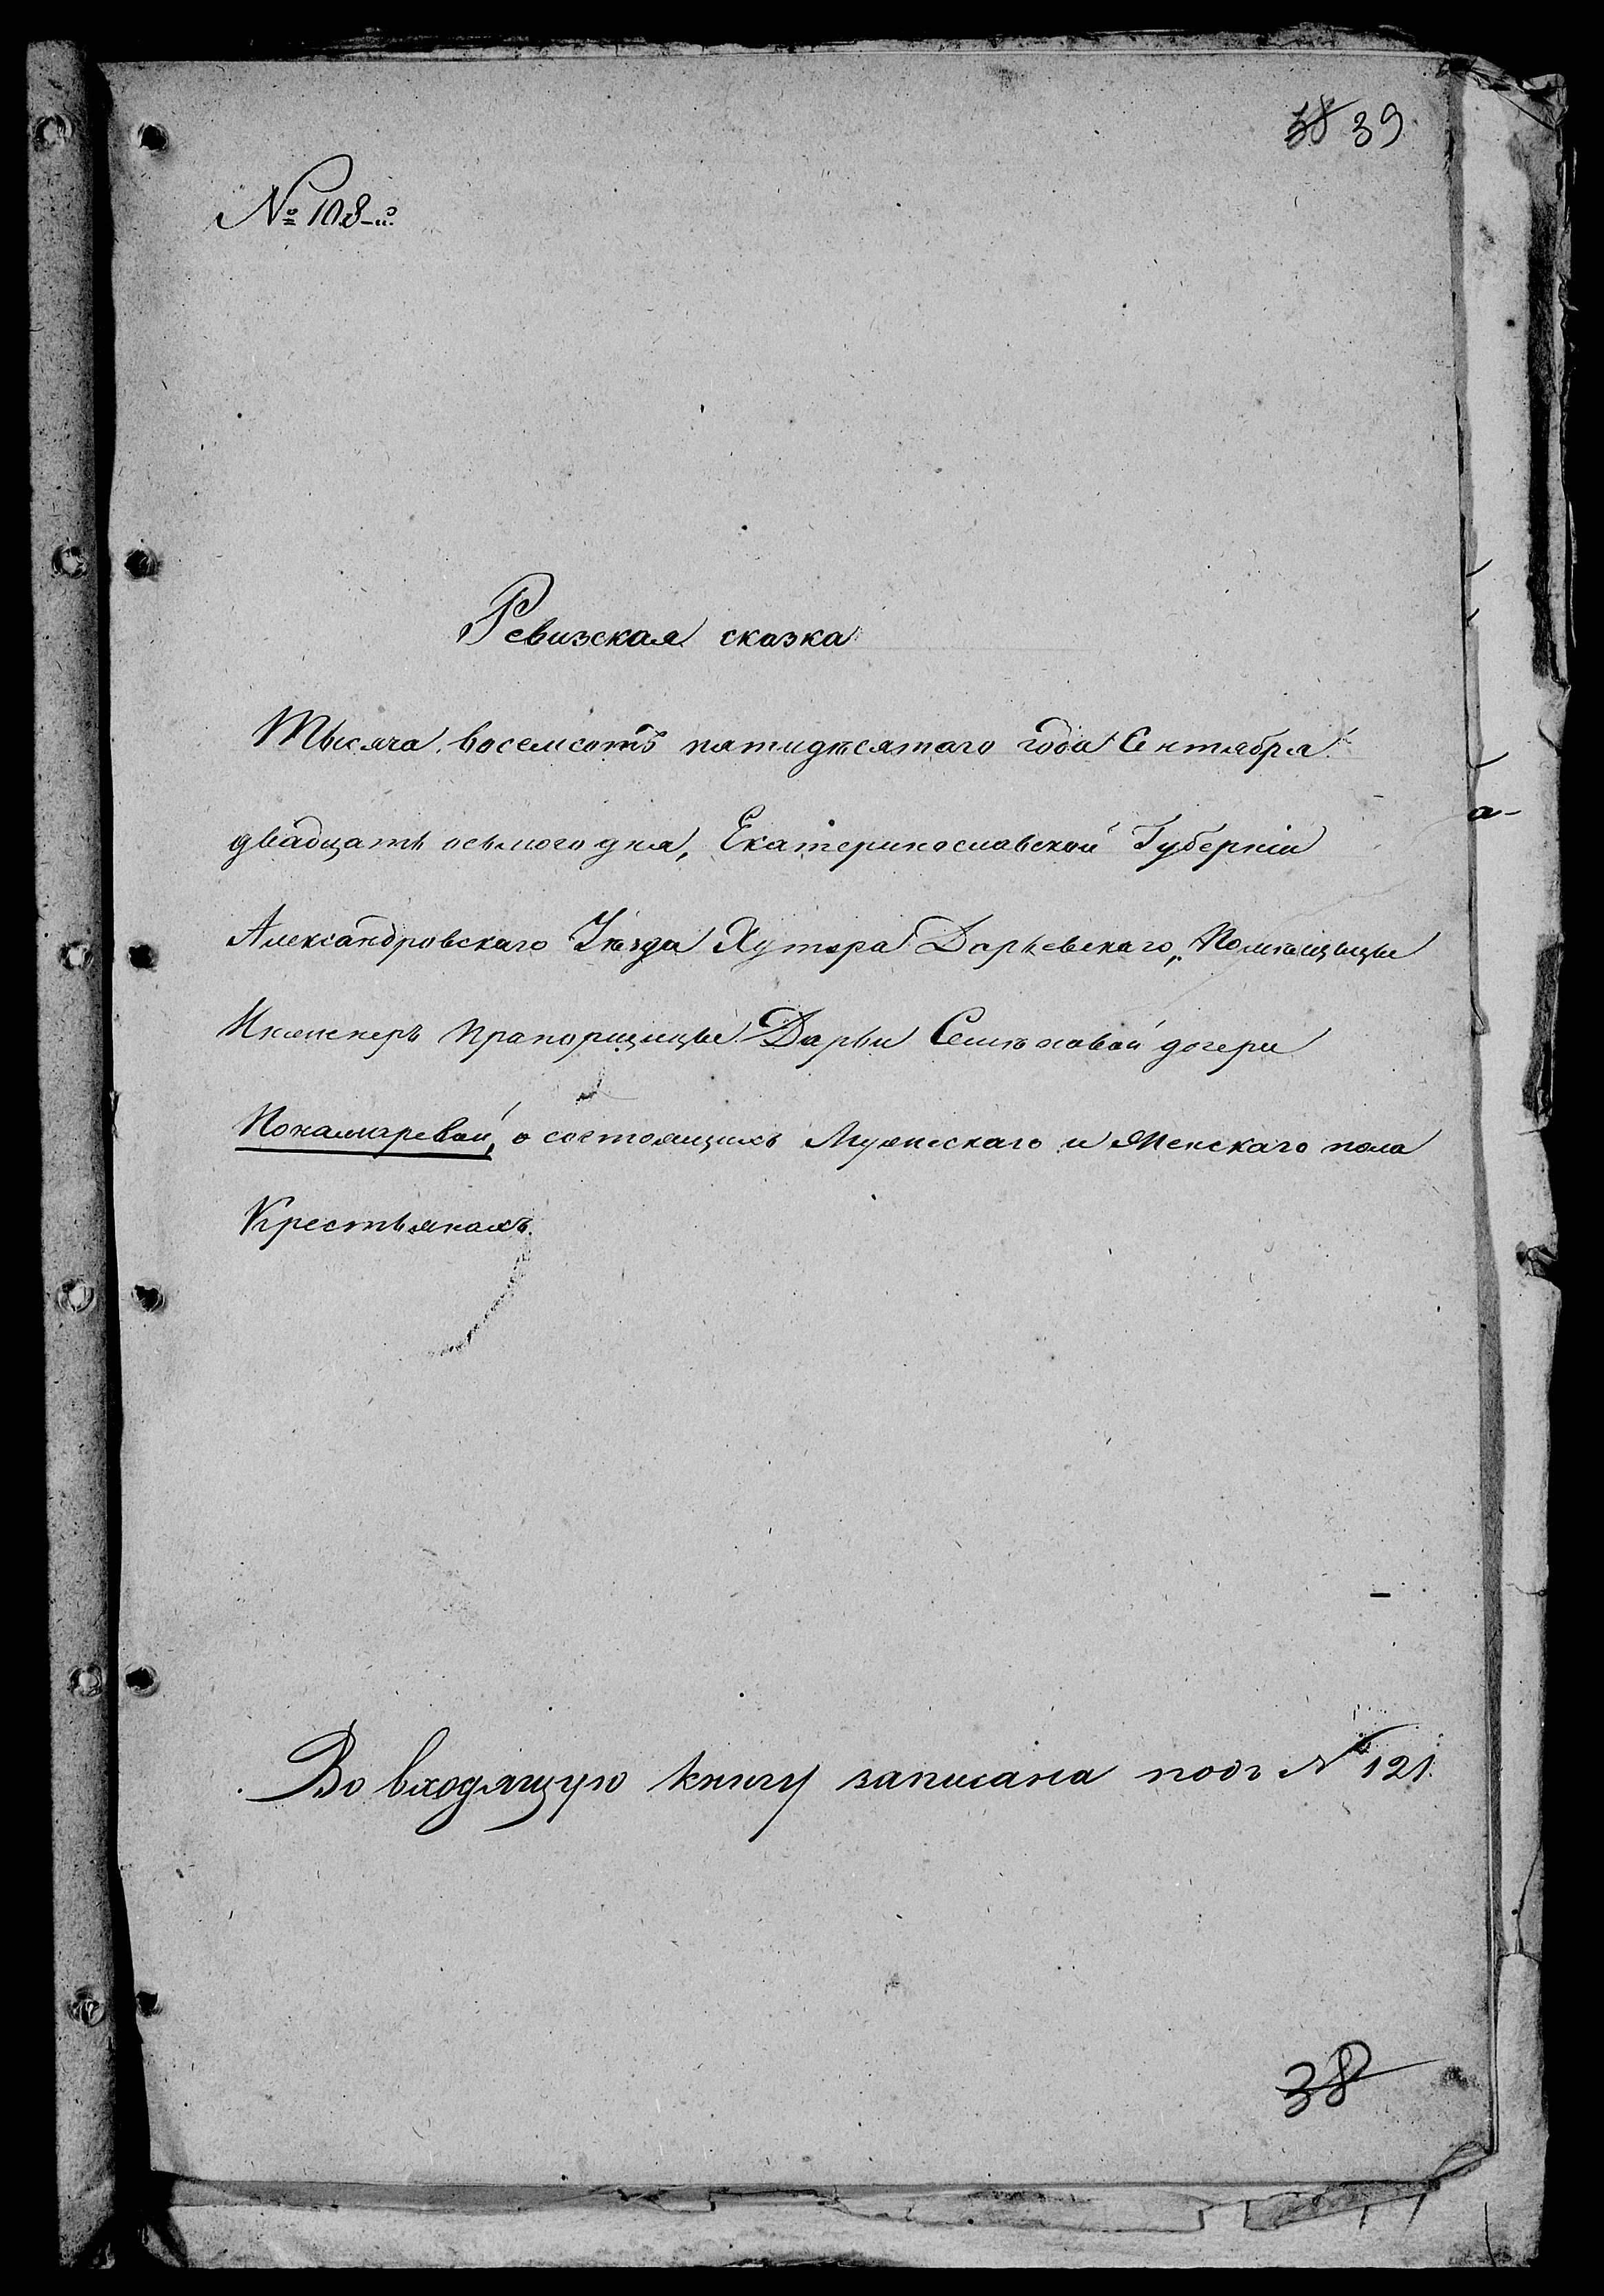 38 39
№ 108-й.
Ревизская сказка
Тысяча восемсотъ пятидесятаго года Сентября
двадцать осьмого дня, Екатеринославской Губерніи
Александровскаго Уѣзда Хутора Дарьевскаго, Помѣщицы
Инженеръ Прапорщицы Дарьи Семеновой дочери
Понамаревой, о состоящихъ Мужескаго и Женскаго пола
Крестьянахъ.
а-
Во входящую книгу записана подъ № 121.
38